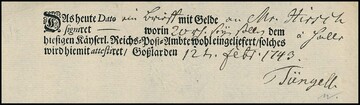 Das heute Dato ein brieff mit Gelde an Mr. Hirsch
signiret — worin 20 rh. sein sollen dem à Halle
hiesigen Käyserl. Reichs-Post-Ambte wohl eingeliefert, solches
wird hiemit attestiret, Goßlarden 12t. Febr. 1743.
Jüngell.